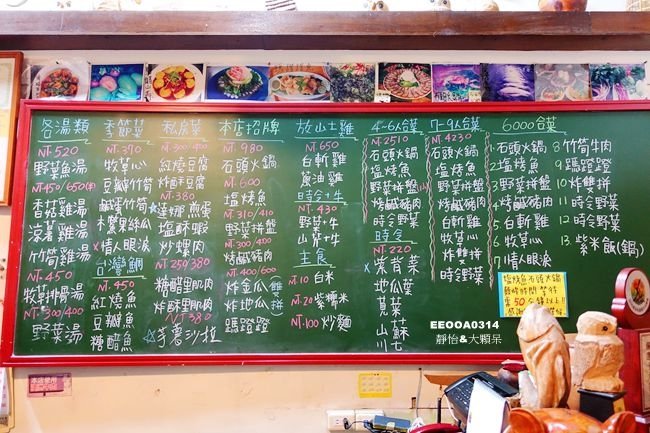 各湯類
NT.520
野菜魚湯
NT450/650(羊)
香菇雞湯
涼薯雞湯
竹筍雞湯
NT.450
牧草排骨湯
NT.300/400
野菜湯
季節菜
NT.370
牧草心
豆瓣竹筍
鹹蛋竹筍
木鱉果絲瓜
x情人眼淚
台灣鯛
NT.450
紅燒魚
豆瓣魚
糖醋魚
私房菜
NT.300/400
紅燒豆腐
炸酥豆腐
NT.380
達娜烏蛋
塩酥蝦
炒螺肉
NT.250/380
糖醋里肌肉
炸酥里肌肉
NT380
芋薯沙拉
本店招牌
NT.980
石頭火鍋
NT.600
塩烤魚
NT.310/410
野菜拼盤
NT.300/400
烤鹹豬肉
NT.400/600
炸金瓜
炸地瓜
雙拼
蹣蹬蹬
放山土雞
NT.650
白斬雞
蔥油雞
時令+牛
NT.430
野菜+牛
山芹+牛
主食
NT.10白米
NT.20紫糯米
NT.100炒麵
4~6人合菜
NT2510
石頭火鍋
塩烤魚
野菜拼盤
烤鹹豬肉
時令野菜
時令
NT.220
x紫背菜
地瓜葉
莧菜
山蘇
川七
7~9人合菜
NT.4230
石頭火鍋
塩烤魚
野菜拼盤
烤鹹豬肉
白斬雞
牧草心
炸雙拼
時令野菜
6000合菜
1.石頭火鍋
2.塩烤魚
3.野菜拼盤
4.烤鹹豬肉
5.白斬雞
6.牧草心
7.情人眼淚
8.竹筍牛肉
9.蹣蹬蹬
10.炸雙拼
11.時令野菜
12.時令野菜
13.紫米飯(鍋)
塩烤魚石頭火鍋
50分鐘以上!!
EEOOA0314
靜怡&大顆呆
本店使用